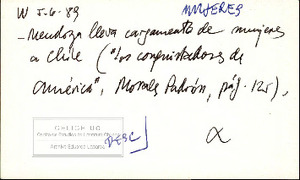 W J-6-89
MUJERES
- Mendoza lleva cargamento de mujeres
a Chile ("Los conquistadores de
América", Morales Padrón, pág. 125),
CELICH UC
DESC
α